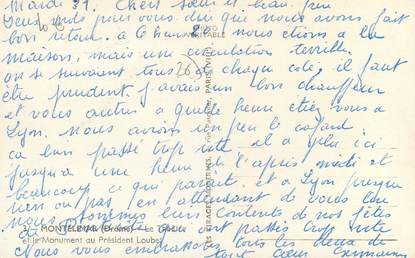 Mardi 31. Chers sœur et beau frère
Deux mots pour vous dire que nous avons fait
bon retour. a 6 heures nous étions a la
maison, mais une circulation terrible.
on se suivaient tous de chaque coté, il faut
être prudent j'avais un bon chauffeur
et vous autres a quelle heure étiez vous a
Lyon. nous avions un peu le cafard.
ca c'est passé trop vite il a plu ici
jusqu'a une heure de l'après midi et
beaucoup ce qui parait. et a Lyon presque
rien ou pas. en attendant de vous lire
nous sommes bien contents de nos fêtes
de Pentecôte ont passés trop vite
Nous vous embrassons tous les deux de
tout cœur
3. MONTÉLIMAR (Drôme) — Le Théâtre
et le Monument au Président Loubet
VÉRITABLE
PARIS (VIIIe)
26